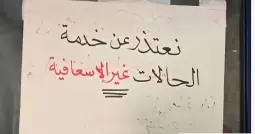 نعتذر عن خدمة
الحالات غير الاسعافية